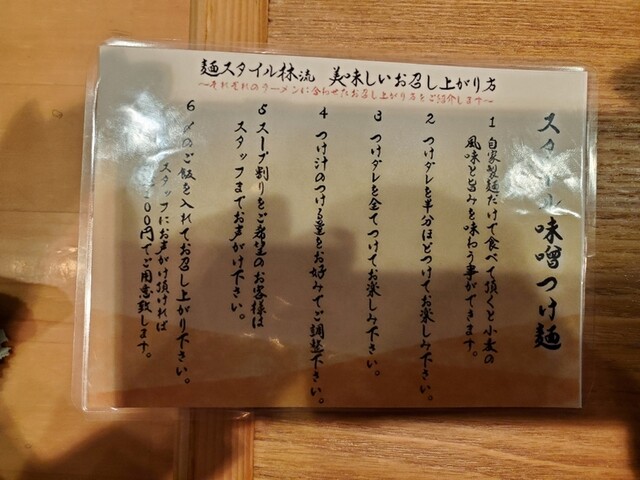 麺スタイル林流 美味しいお召し上がり方
〜それぞれのラーメンに合わせたお召し上がり方をご紹介します〜
スタイル味噌つけ麺
1 自家製麺だけで食べて頂くと小麦の
風味と旨みを味わう事ができます。
2 つけダレを半分ほどつけてお楽しみ下さい。
3 つけダレを全てつけてお楽しみ下さい。
4 つけ汁のつける量をお好みでご調整下さい。
5 スープ割りをご希望のお客様は
スタッフまでお声がけ下さい。
6 〆のご飯を入れてお召し上がり下さい。
スタッフにお声がけ頂ければ
00円でご用意致します。